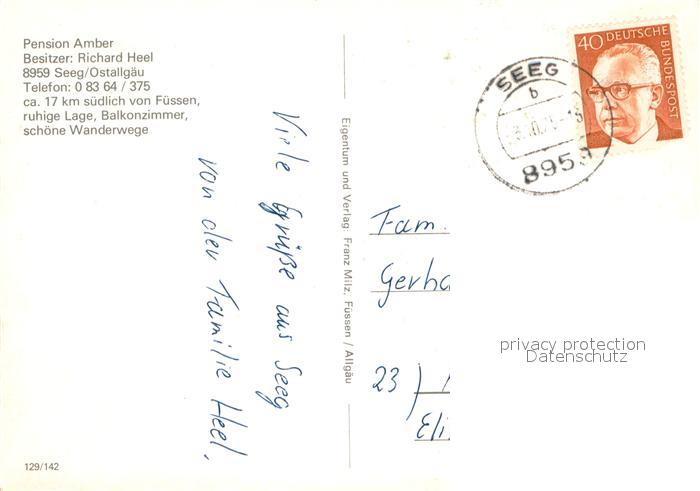 Pension Amber
Besitzer: Richard Heel
8959 Seeg/Ostallgäu
Telefon: 0 83 64 / 375
ca. 17 km südlich von Füssen,
ruhige Lage, Balkonzimmer,
schöne Wanderwege
Viele Grüße aus Seeg
von der Familie Heel,
129/142
Eigentum und Verlag: Franz Milz, Füssen / Allgäu
40 DEUTSCHE
BUNDESPOST
SEEG
b
8959
Fam.
Gerha
23
Eli
privacy protection
Datenschutz